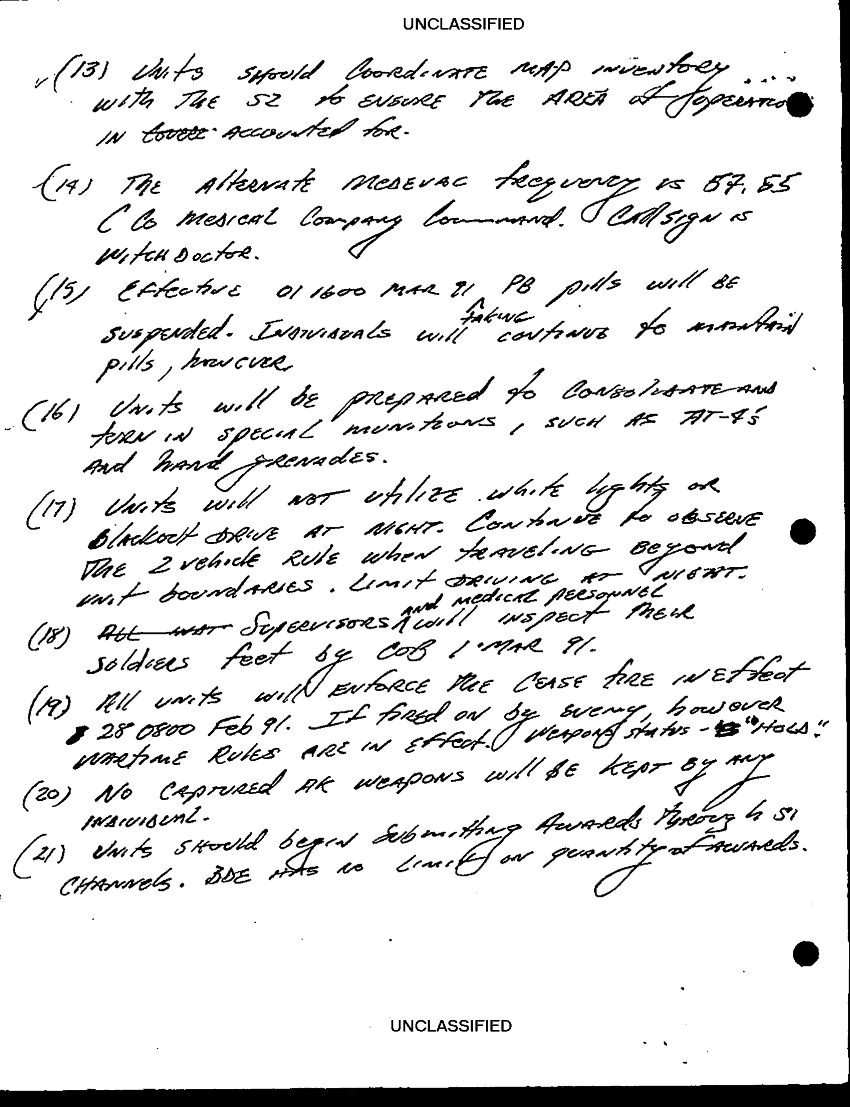 UNCLASSIFIED
(13) Units should coordinate map inventory ....
with the S2 to ensure the area of operation
in cover accounted for.
(14) The alternate medevac frequency is 57.55
C Co Medical Company Command. Call sign is
Witch Doctor.
(15) Effective 01 1600 Mar 91, PB pills will be
taking
suspended. Individuals will continue to maintain
pills, however.
(16) Units will be prepared to consolidate and
turn in special munitions, such as AT-4's
and hand grenades.
(17) Units will not utilize white lights or
blackout drive at night. Continue to observe
the 2 vehicle rule when traveling beyond
unit boundaries. Limit driving at night.
and medical personnel
(18) All Supervisors ^ will inspect their
soldiers feet by COB 1 Mar 91.
(19) All units will enforce the cease fire in effect
28 0800 Feb 91. If fired on by enemy, however
wartime rules are in effect. Weapons status - "Hold".
(20) No captured AK weapons will be kept by any
individual.
(21) Units should begin submitting awards through S1
channels. BDE has no limit on quantity of awards.
UNCLASSIFIED